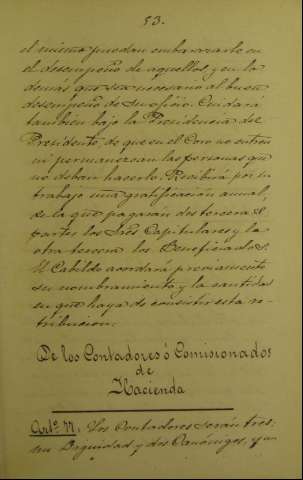 53.
el mismo puedan embarazarle en
el desempeño de aquellos y en lo
demás que sea necesario al buen
desempeño de su oficio. Cuidará
también bajo la Presidencia del
Presidente, de que en el Coro no entren
ni permanezcan las personas que
no deban hacerlo. Recibirá por su
trabajo una gratificación anual,
de la que pagarán dos terceras
partes los Sres Capitulares y la
otra tercera los Beneficiados.
El Cabildo acordará previamente
su nombramiento y la cantidad
en que haya de consistir esta re-
tribución.
De los Contadores ó Comisionados
de
Hacienda
Artº 77. Los Contadores serán tres:
una Dignidad y dos Canónigos, y